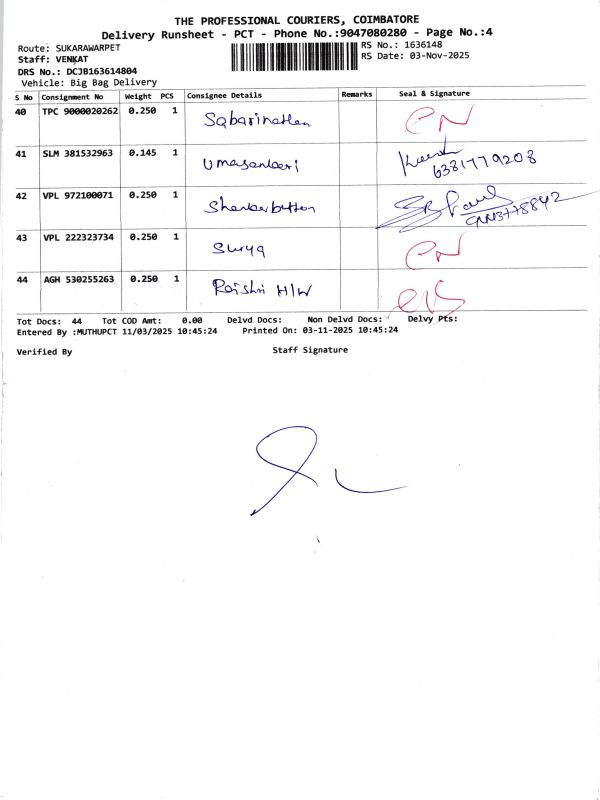 THE PROFESSIONAL COURIERS, COIMBATORE
Delivery Runsheet - PCT - Phone No.:9047080280 - Page No.:4
Route: SUKARAWARPET
RS No.: 1636148
Staff: VENKAT
RS Date: 03-Nov-2025
DRS No.: DCJB163614804
Vehicle: Big Bag Delivery
S No Consignment No Weight PCS Consignee Details Remarks Seal & Signature
40 TPC 9000020262 0.250 1 Sabarinathan
41 SLM 381532963 0.145 1 Umasankari 6381779208
42 VPL 972100071 0.250 1
43 VPL 222323734 0.250 1 Surya
44 AGH 530255263 0.250 1 H/W
Tot Docs: 44 Tot COD Amt: 0.00 Delvd Docs: Non Delvd Docs: Delvy Pts:
Entered By :MUTHUPCT 11/03/2025 10:45:24 Printed On: 03-11-2025 10:45:24
Verified By Staff Signature